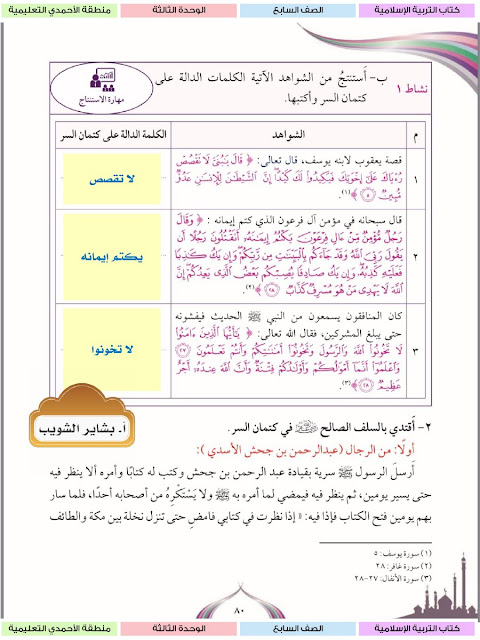 كتاب التربية الإسلامية
الصف السابع
الوحدة الثالثة
منطقة الأحمدي التعليمية
نشاط ١
ب- أَستنتجُ من الشواهد الآتية الكلمات الدالة على
كتمان السر وأكتبها.
مهارة الاستنتاج
م
الشواهد
الكلمة الدالة على كتمان السر
١
قصة يعقوب لابنه يوسف، قال تعالى: ﴿ قَالَ يَبُنَىَّ لَا تَقْصُصْ
رُءْيَاكَ عَلَىٰٓ إِخْوَتِكَ فَيَكِيدُوا۟ لَكَ كَيْدًا إِنَّ ٱلشَّيْطَٰنَ لِلْإِنسَٰنِ عَدُوٌّ
مُّبِينٌ ٥ ﴾(١).
لا تقصص
٢
قال سبحانه في مؤمن آل فرعون الذي كتم إيمانه : ﴿ وَقَالَ
رَجُلٌ مُّؤْمِنٌ مِّنْ ءَالِ فِرْعَوْنَ يَكْتُمُ إِيمَٰنَهُۥٓ أَتَقْتُلُونَ رَجُلًا أَن
يَقُولَ رَبِّىَ ٱللَّهُ وَقَدْ جَآءَكُم بِٱلْبَيِّنَٰتِ مِن رَّبِّكُمْ وَإِن يَكُ كَٰذِبًا
فَعَلَيْهِ كَذِبُهُۥ وَإِن يَكُ صَادِقًا يُصِبْكُم بَعْضُ ٱلَّذِى يَعِدُكُمْ إِنَّ
ٱللَّهَ لَا يَهْدِى مَنْ هُوَ مُسْرِفٌ كَذَّابٌ ٢٨ ﴾(٢).
يكتم إيمانه
٣
كان المنافقون يسمعون من النبي ﷺ الحديث فيفشونه
حتى يبلغ المشركين، فقال الله تعالى: ﴿ يَٰٓأَيُّهَا ٱلَّذِينَ ءَامَنُوا۟
لَا تَخُونُوا۟ ٱللَّهَ وَٱلرَّسُولَ وَتَخُونُوٓا۟ أَمَٰنَٰتِكُمْ وَأَنتُمْ تَعْلَمُونَ ٢٧
وَٱعْلَمُوٓا۟ أَنَّمَآ أَمْوَٰلُكُمْ وَأَوْلَٰدُكُمْ فِتْنَةٌ وَأَنَّ ٱللَّهَ عِندَهُۥٓ أَجْرٌ
عَظِيمٌ ٢٨ ﴾(٣).
لا تخونوا
أ. بشاير الشويب
٢- أَقتدي بالسلف الصالح في كتمان السر.
أولًا: من الرجال (عبدالرحمن بن جحش الأسدي ):
أَرسلَ الرسول ﷺ سرية بقيادة عبد الرحمن بن جحش وكتب له كتابًا وأمره ألا ينظر فيه
حتى يسير يومين، ثم ينظر فيه فيمضي لما أمره به ﷺ ولا يَسْتَكْرِهُ من أصحابه أحدًا، فلما سار
بهم يومين فتح الكتاب فإذا فيه: « إذا نظرت في كتابي فامضِ حتى تنزل نخلة بين مكة والطائف
(١) سورة يوسف: ٥
(٢) سورة غافر: ٢٨
(٣) سورة الأنفال: ٢٧-٢٨
٨٠
كتاب التربية الإسلامية
الصف السابع
الوحدة الثالثة
منطقة الأحمدي التعليمية